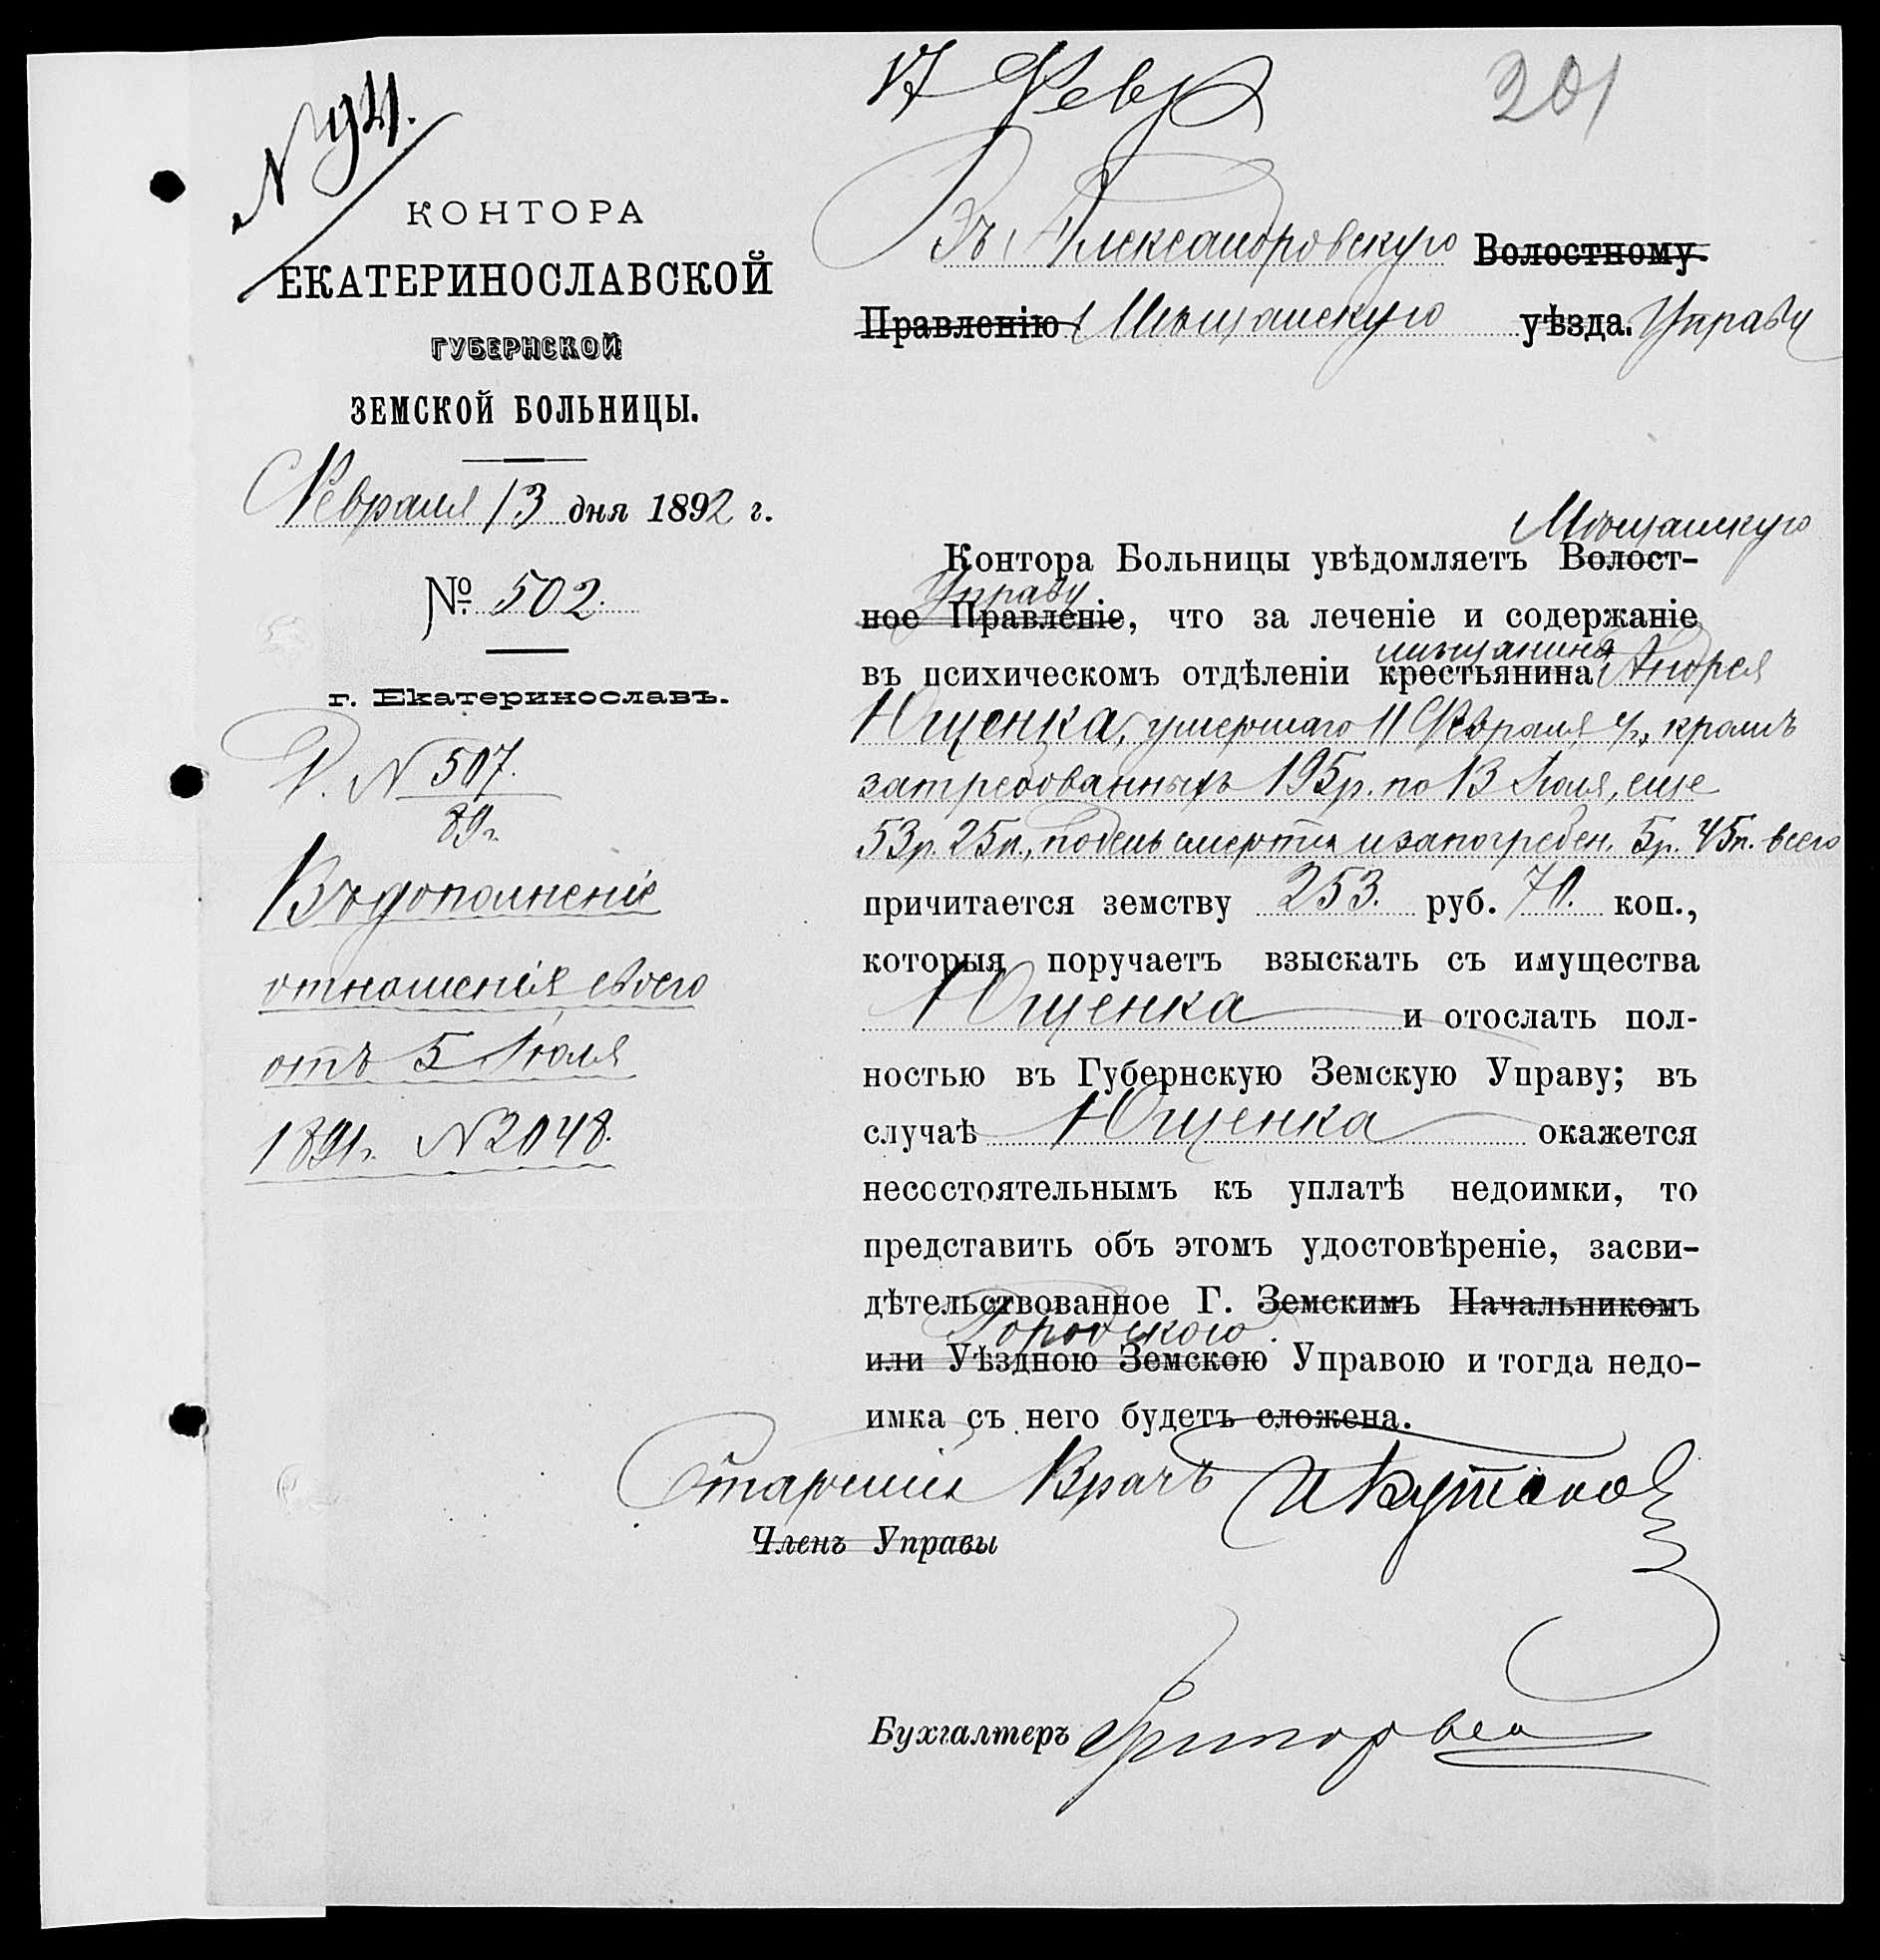 17 Февр
201
N 194.
КОНТОРА
ЕКАТЕРИНОСЛАВСКОЙ
ГУБЕРНСКОЙ
ЗЕМСКОЙ БОЛЬНИЦЫ.
Февраля 13 дня 1892 г.
№ 502.
г. Екатеринославъ.
Д. N 507.
89г.
Въ дополненіе
отношенія своего
отъ 5 Іюля
1891г. N 2048.
Въ Александровскую Волостному
Правленію Мѣщанскую уѣзда. Управу
Мѣщанскую
Контора Больницы увѣдомляетъ Волост-
Управу
ное Правленіе, что за леченіе и содержаніе
мѣщанина
въ психическомъ отдѣленіи крестьянина Андрея
Ющенка, умершаго 11 Февраля с/г., кромѣ
затребованныхъ 195р. по 13 Іюля, еще
53р. 25к., по день смерти и за погребен. 5р. 45к. всего
причитается земству 253. руб. 70. коп.,
которыя поручаетъ взыскать съ имущества
Ющенка и отослать пол-
ностью въ Губернскую Земскую Управу; въ
случаѣ Ющенка окажется
несостоятельнымъ къ уплатѣ недоимки, то
представить объ этомъ удостовѣреніе, засви-
дѣтельствованное Г. Земскимъ Начальникомъ
Городскою
или Уѣздною Земскою Управою и тогда недо-
имка съ него будетъ сложена.
Старшій Врачъ
Членъ Управы
Бухгалтеръ